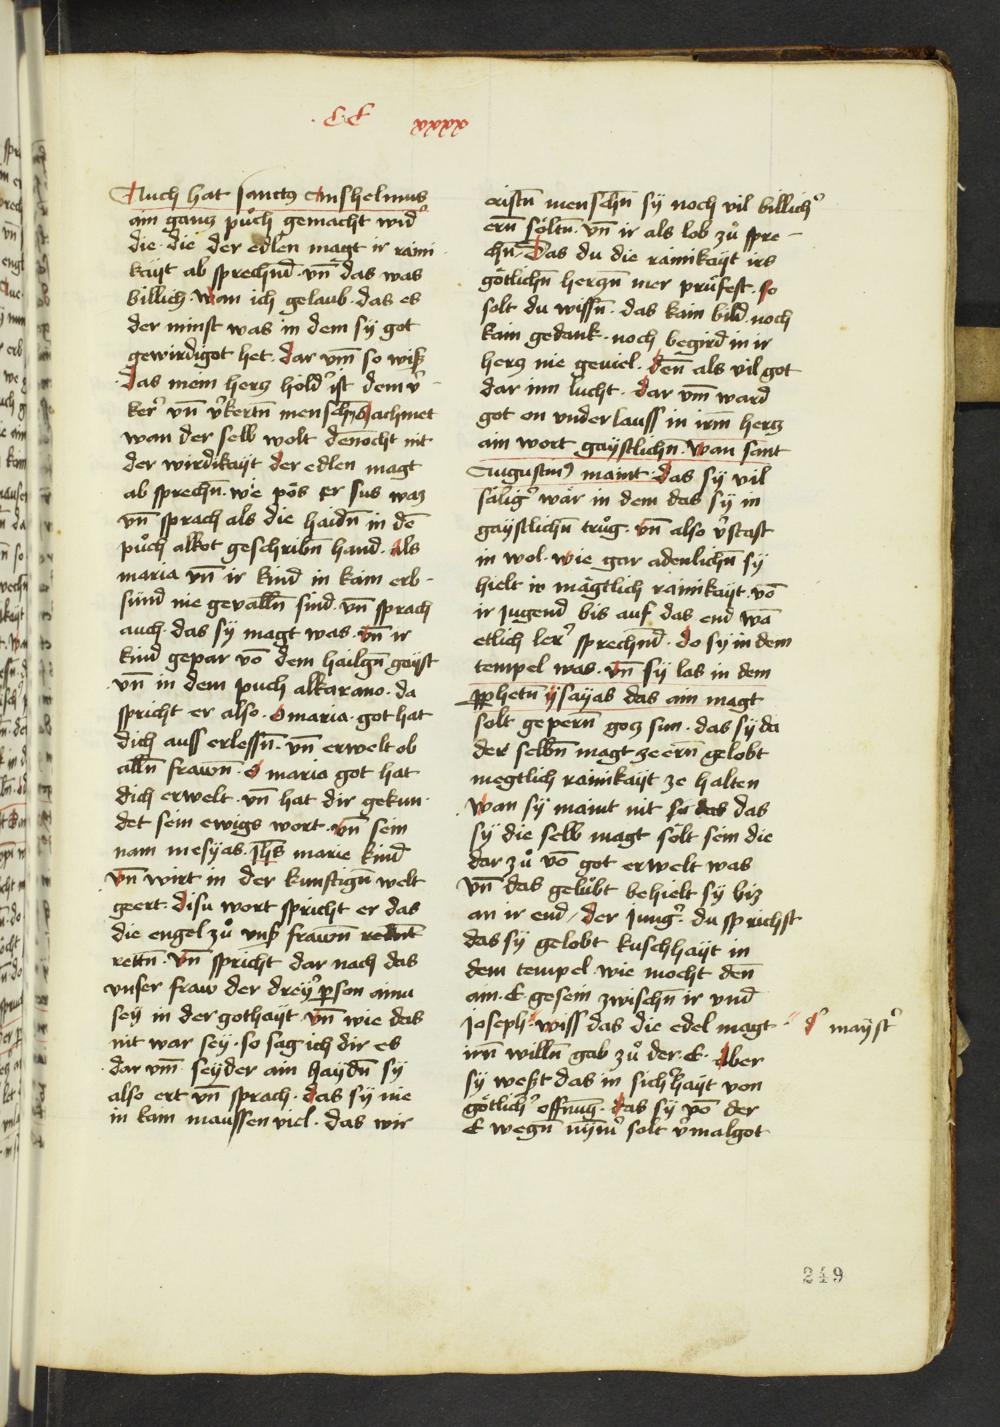 CC xxxx
Auch hat sanctus Anshelmus
ain gancz puͦch gemacht wid̓
die · die der edlen magt ir raini
kayt ab sprechnd · vn̄ das was
billich · wan ich gelaub · das es
der minst was in dem sy got
gewirdigot het · dar vm̄ so wiß
das mein hercz hold̓ ist dem v̓
ker̓ vn̄ v̓kertn̄ menschn̄ Machmet
wan der selb wolt dēnocht nit
der wirdikayt der edlen magt
ab sprechn̄ · wie pös er sus waz
vn̄ sprach als die haidn̄ in dē
puͦch alkot geschribn̄ hand · als
maria vn̄ ir kind in kain erb
sünd nie gevalln̄ sind · vn̄ sprach
auch · das sy magt was · vn̄ ir
kind gepar vō dem hailgn̄ gayst
vn̄ in dem puch alkarano · da
spricht er also · o maria · got hat
dich auss erlessn̄ · vn̄ erwelt ob
alln̄ frawn̄ · O maria got hat
dich erwelt · vn̄ hat dir gekun
det sein ewigs wort · vn̄ sein
nam mesyas · Jh̄s marie kind
vn̄ wirt in der kunftign̄ welt
geert · disu wort spricht er das
die engel zuͦ vnß frawn̄
rettn̄ · Vn̄ spricht dar nach das
vnser fraw der drey̓ pson ainu
sey in der gothayt vn̄ wie das
nit war sey · so sag ich dir es
dar vm̄ · seyder ain haydn̄ sy
also ert vn̄ sprach · das sy nie
in kain maussen viel · das wir
cristn̄ menschn̄ sy noch vil billich̓
ern̄ söltn̄ · vn̄ ir als lob zuͦ spre
chn̄ Das du die rainikayt irs
götlichn̄ herczn̄ mer prüfest · so
solt du wissn̄ · das kain bild · noch
kain gedank · noch begird in ir
hercz nie geviel · den̄ als vil got
dar inn lucht · dar vm̄ ward
got on vnderlauss in irm̄ hercz
ain wort gaystlichn̄ · wan sant
Augustin9 maint · das sy vil
sälig̓ wär in dem das sy in
gaystlichn̄ truͦg · vn̄ also v̓stast
in wol · wie gar adenlichn̄ sy
hielt ir mägtlich rainikayt · vō
ir jugend bis auf das end wā
etlich ler̓ sprechnd · do sy in dem
tempel was · vn̄ sy las in dem
pphetn̄ ysayas das ain magt
solt gepern̄ gocz sun · das sy da
der selbn̄ magt ze ern̄ gelobt
megtlich rainikayt ze halten
wan sy maint nit so das das
sy die selb magt solt sein die
dar zuͦ vō got erwelt was
vn̄ das gelübt behielt sy biz
an ir end / der jung̓ · du sprichst
das sy gelobt kuschhayt in
dem tempel · wie mocht den̄
ain · E gesein zwischn̄ ir vnd
joseph · wiss das die edel magt
d̓ mayst̓
irn̄ willn̄ gab zuͦ der · E · aber
sy weßt das in sicherhayt von
götlich̓ offnung · das sy vō der
E wegn̄ nym̓ solt v̓malgot
249